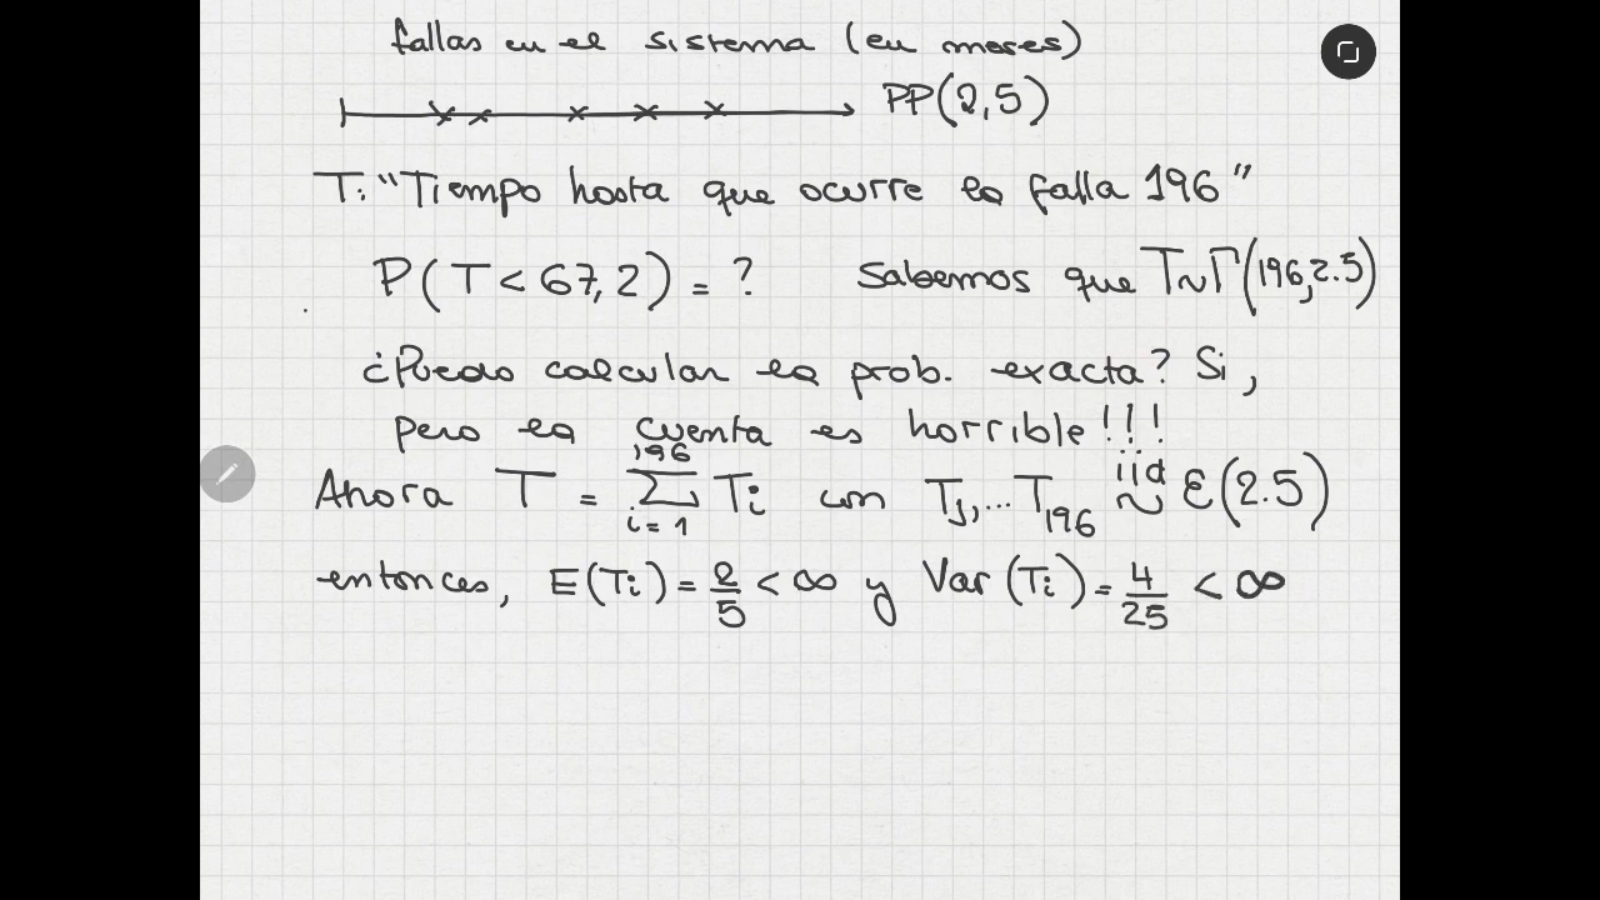 fallas en el sistema (en meses)
PP(2,5)
T: "Tiempo hasta que ocurre la falla 196"
P(T < 67,2) = ? Sabemos que T ~ Γ(196, 2.5)
¿Puedo calcular la prob. exacta? Si,
pero la cuenta es horrible!!!
Ahora T = ∑_{i=1}^{196} Ti con T1,...T196 iid ~ Ɛ(2.5)
entonces, E(Ti) = 2/5 < ∞ y Var(Ti) = 4/25 < ∞